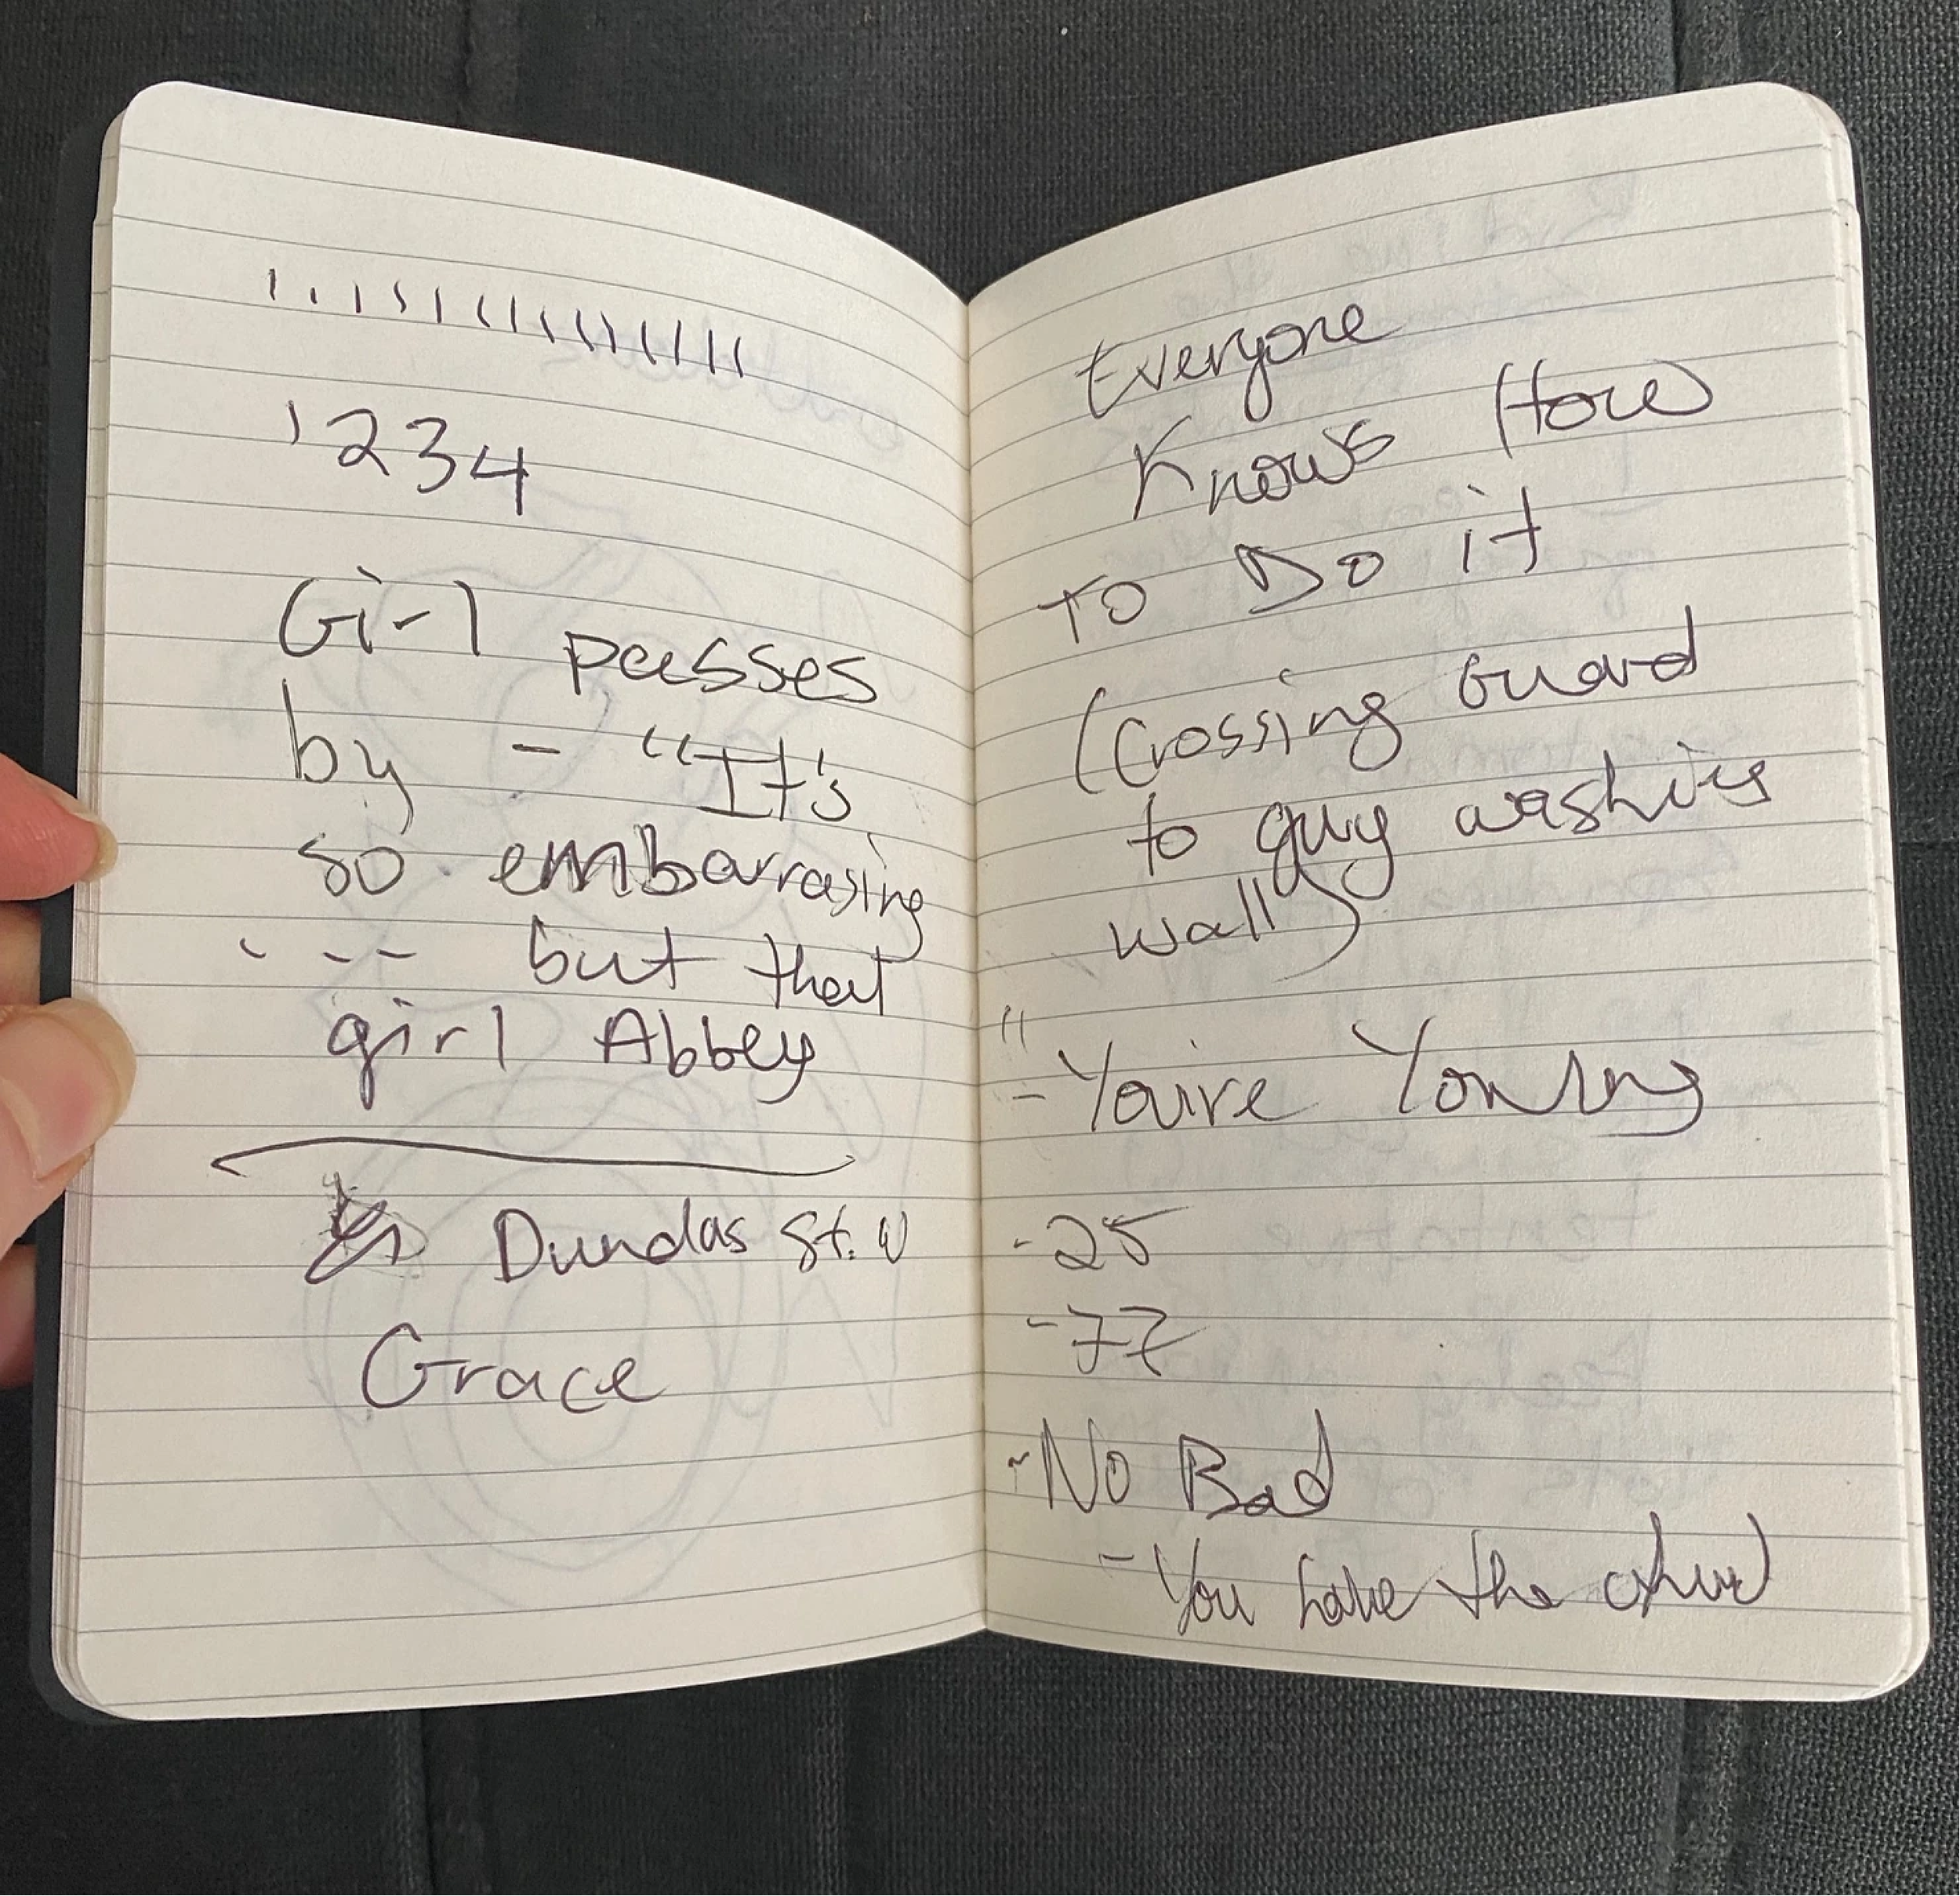 1234
Girl passes
by - "It's
so embarrasing
. -- but that
girl Abbey
Dundas St. W
Grace
Everyone
Knows How
To Do it
(Crossing Guard
to guy washing
wall)
"
- You're Young
- 25
- 77
- No Bad
- You have the